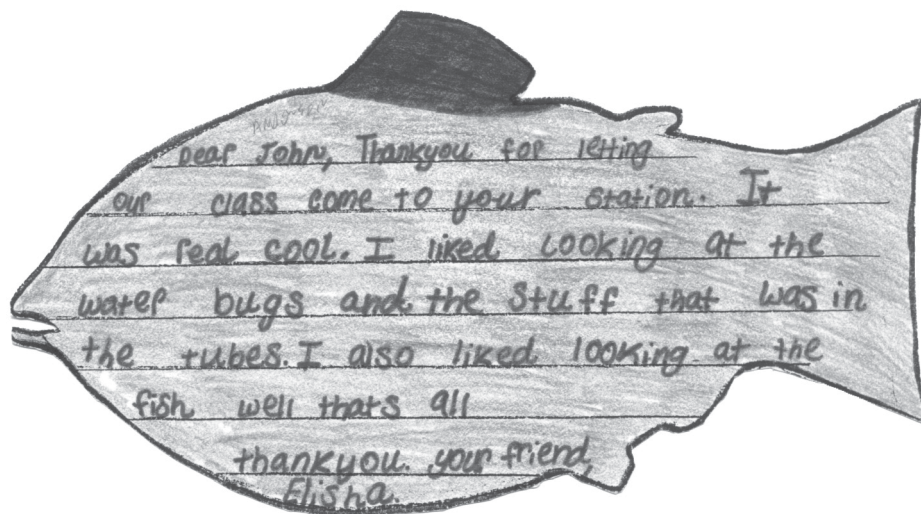 Dear John, Thankyou for letting
our class come to your station. It
was real cool. I liked looking at the
water bugs and the stuff that was in
the tubes. I also liked looking at the
fish well thats all
thankyou. your friend,
Elisha.